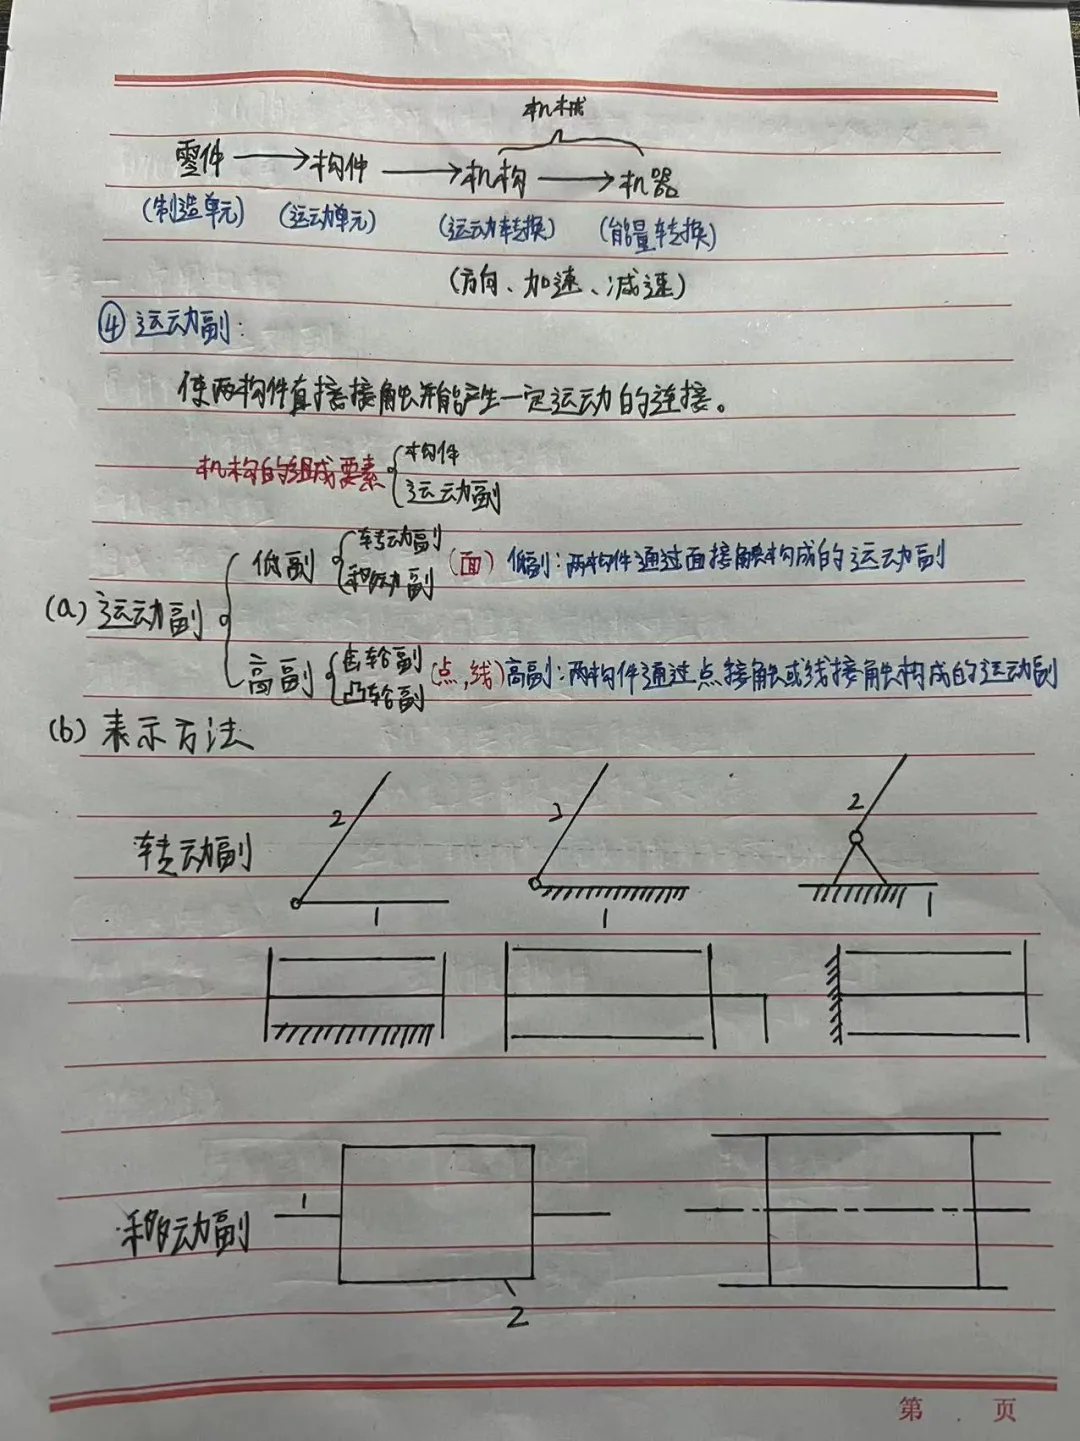 机械
零件 → 构件 → 机构 → 机器
(制造单元) (运动单元) (运动转换) (能量转换)
(方向、加速、减速)
④ 运动副:
使两构件直接接触并能产生一定运动的连接。
机构的组成要素 { 构件
运动副
(a) 运动副 { 低副 { 转动副
移动副 (面) 低副:两构件通过面接触构成的运动副
高副 { 齿轮副
凸轮副 (点,线) 高副:两构件通过点接触或线接触构成的运动副
(b) 表示方法
转动副 2 1 2 1 2 1
移动副 1 2
第 页